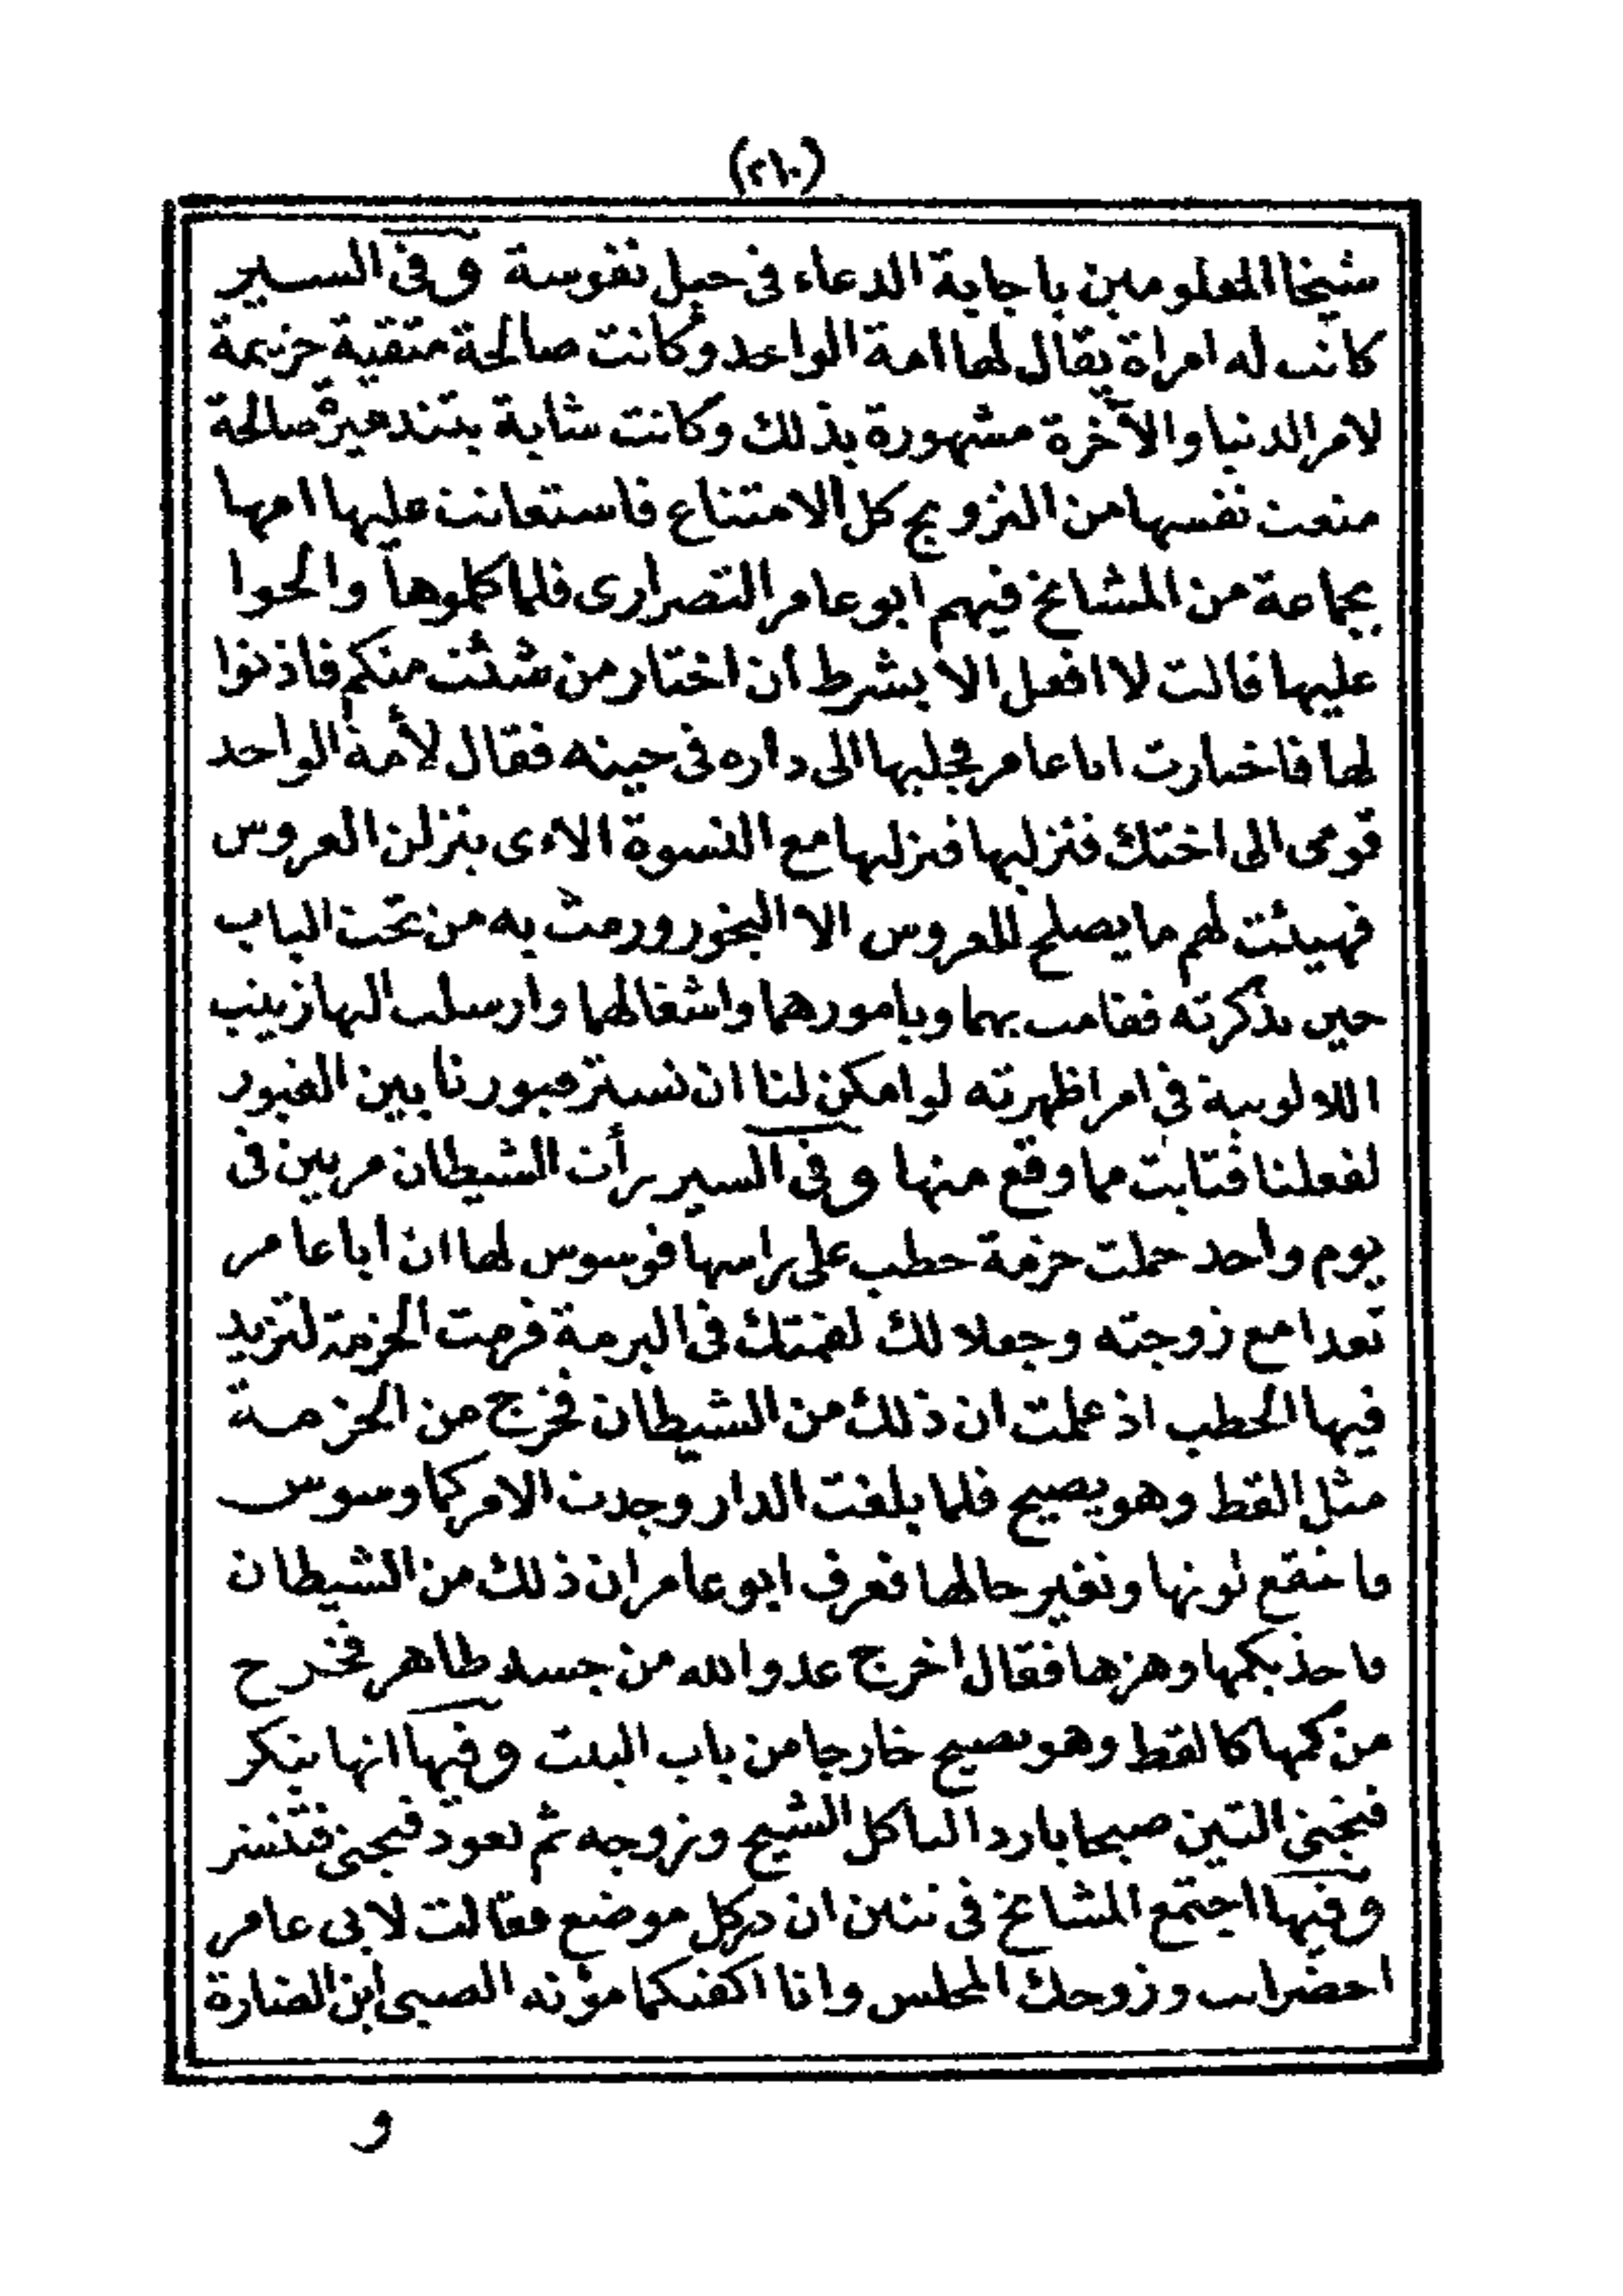 (٢١٠)
شيخنا المعلومين باجابة الدعاء في جبل نفوسة وفى السير
كانت له امراة يقال لها امة الواحد وكانت صالحة متقية حزيمة
لامر الدنيا والآخرة مشهورة بذلك وكانت شابة بتندميرة صالحة
منعت نفسها من التزويج كل الامتناع فاستعانت عليها امها
بجماعة من المشائخ فيهم ابو عامر التصرارى فلما كلموها والحوا
عليها قالت لا افعل الا بشرط أن اختار من شئت منكم فاذنوا
لها فاختارت ابا عامر فجلبها الى داره فى حينه فقال لأمة الواحد
قومى الى اختك فنزليها فنزلها مع النسوة الاءى ينزلن العروس
فهيئت لهم ما يصلح للعروس الا البخور ورمت به من تحت الباب
حين تذكرته فقامت بهما وبامورهما واشغالهما وارسلت اليها زينب
اللالوتية في امر اظهرته لو امكن لنا ان نستر قبورنا بين القبور
لفعلنا فتابت مما وقع منها وفى السير رأت الشيطان مرتين فى
يوم واحد حملت حزمة حطب على راسها فوسوس لها ان ابا عامر
تغدا مع زوجته وجعلا لك لقمتك فى البرمة فرمت الحزمة لتزيد
فيها الحطب اذ علمت ان ذلك من الشيطان فخرج من الحزمة
مثل القط وهو يصيح فلما بلغت الدار وجدت الامر كما وسوس
فامتقع لونها وتغير حالها فعرف ابو عامر ان ذلك من الشيطان
فاخذ بكمها وهزها فقال اخرج عدو الله من جسد طاهر فخرج
من كمها كالقط وهو يصيح خارجا من باب البيت وفيها انها تبكر
فتجنى التين صبحا باردا لياكل الشيخ وزوجه ثم تعود فتجنى فتنشر
وفيها اجتمع المشائخ فى تنين ان دركل موضع فقالت لابى عامر
احضر انت وزوجك المجلس وانا اكفيكما مؤنه الصبى ابن الضارة
و